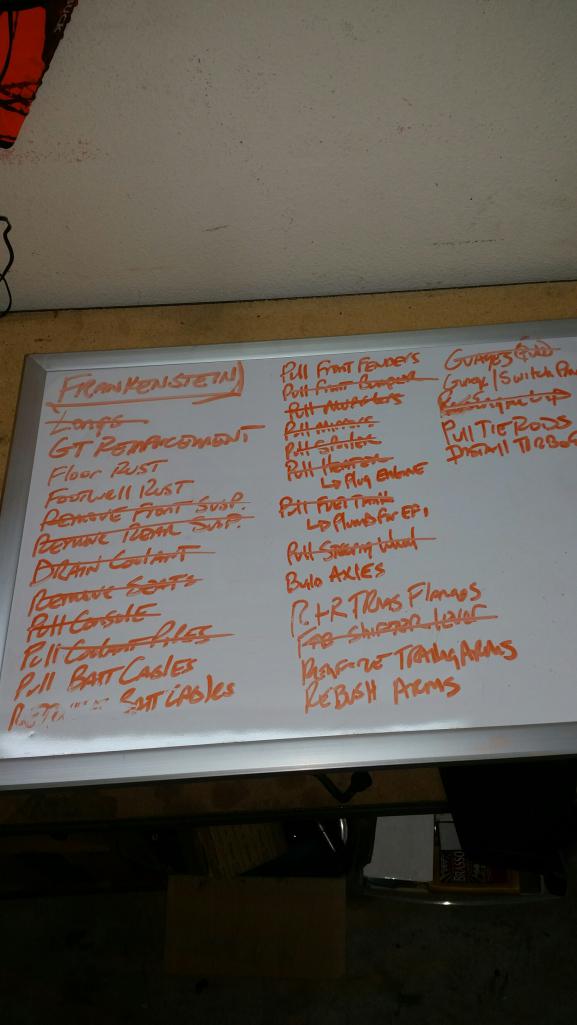 FRANKENSTEIN
Longs
GT REINFORCEMENT
Floor RUST
FOOTWELL RUST
REMOVE FRONT SUSP.
REMOVE REAR SUSP.
DRAIN COOLANT
REMOVE SEATS
Pull CONSOLE
Pull Coolant Pipes
Pull BATT CABLES
BATT CABLES
Pull FRONT FENDERS
Pull Front Bumper
Pull MUFFLERS
Pull Mirrors
Pull Spoiler
Pull Heater
↳ Plug ENGINE
Pull FUEL TANK
↳ Plumb For EFI
Pull Steering Wheel
Build AXLES
R+R TRANS Flanges
FAB SHIFTER LEVER
TRAILING ARMS
REBUSH ARMS
GUAGES
Guage/Switch
Pull TIE RODS
INSTALL
BRASSO